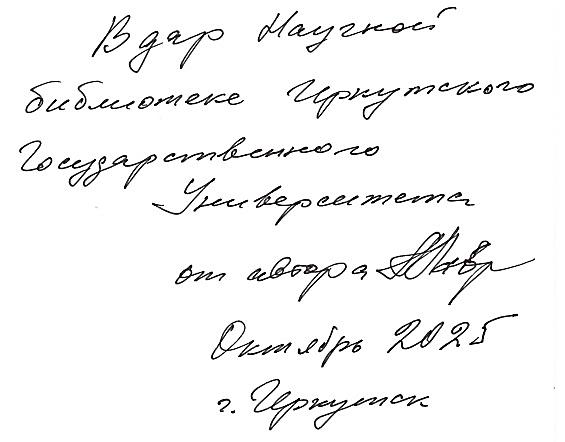 В дар Научной
библиотеке Иркутского
Государственного
Университета
от автора
Октябрь 2025
г. Иркутск